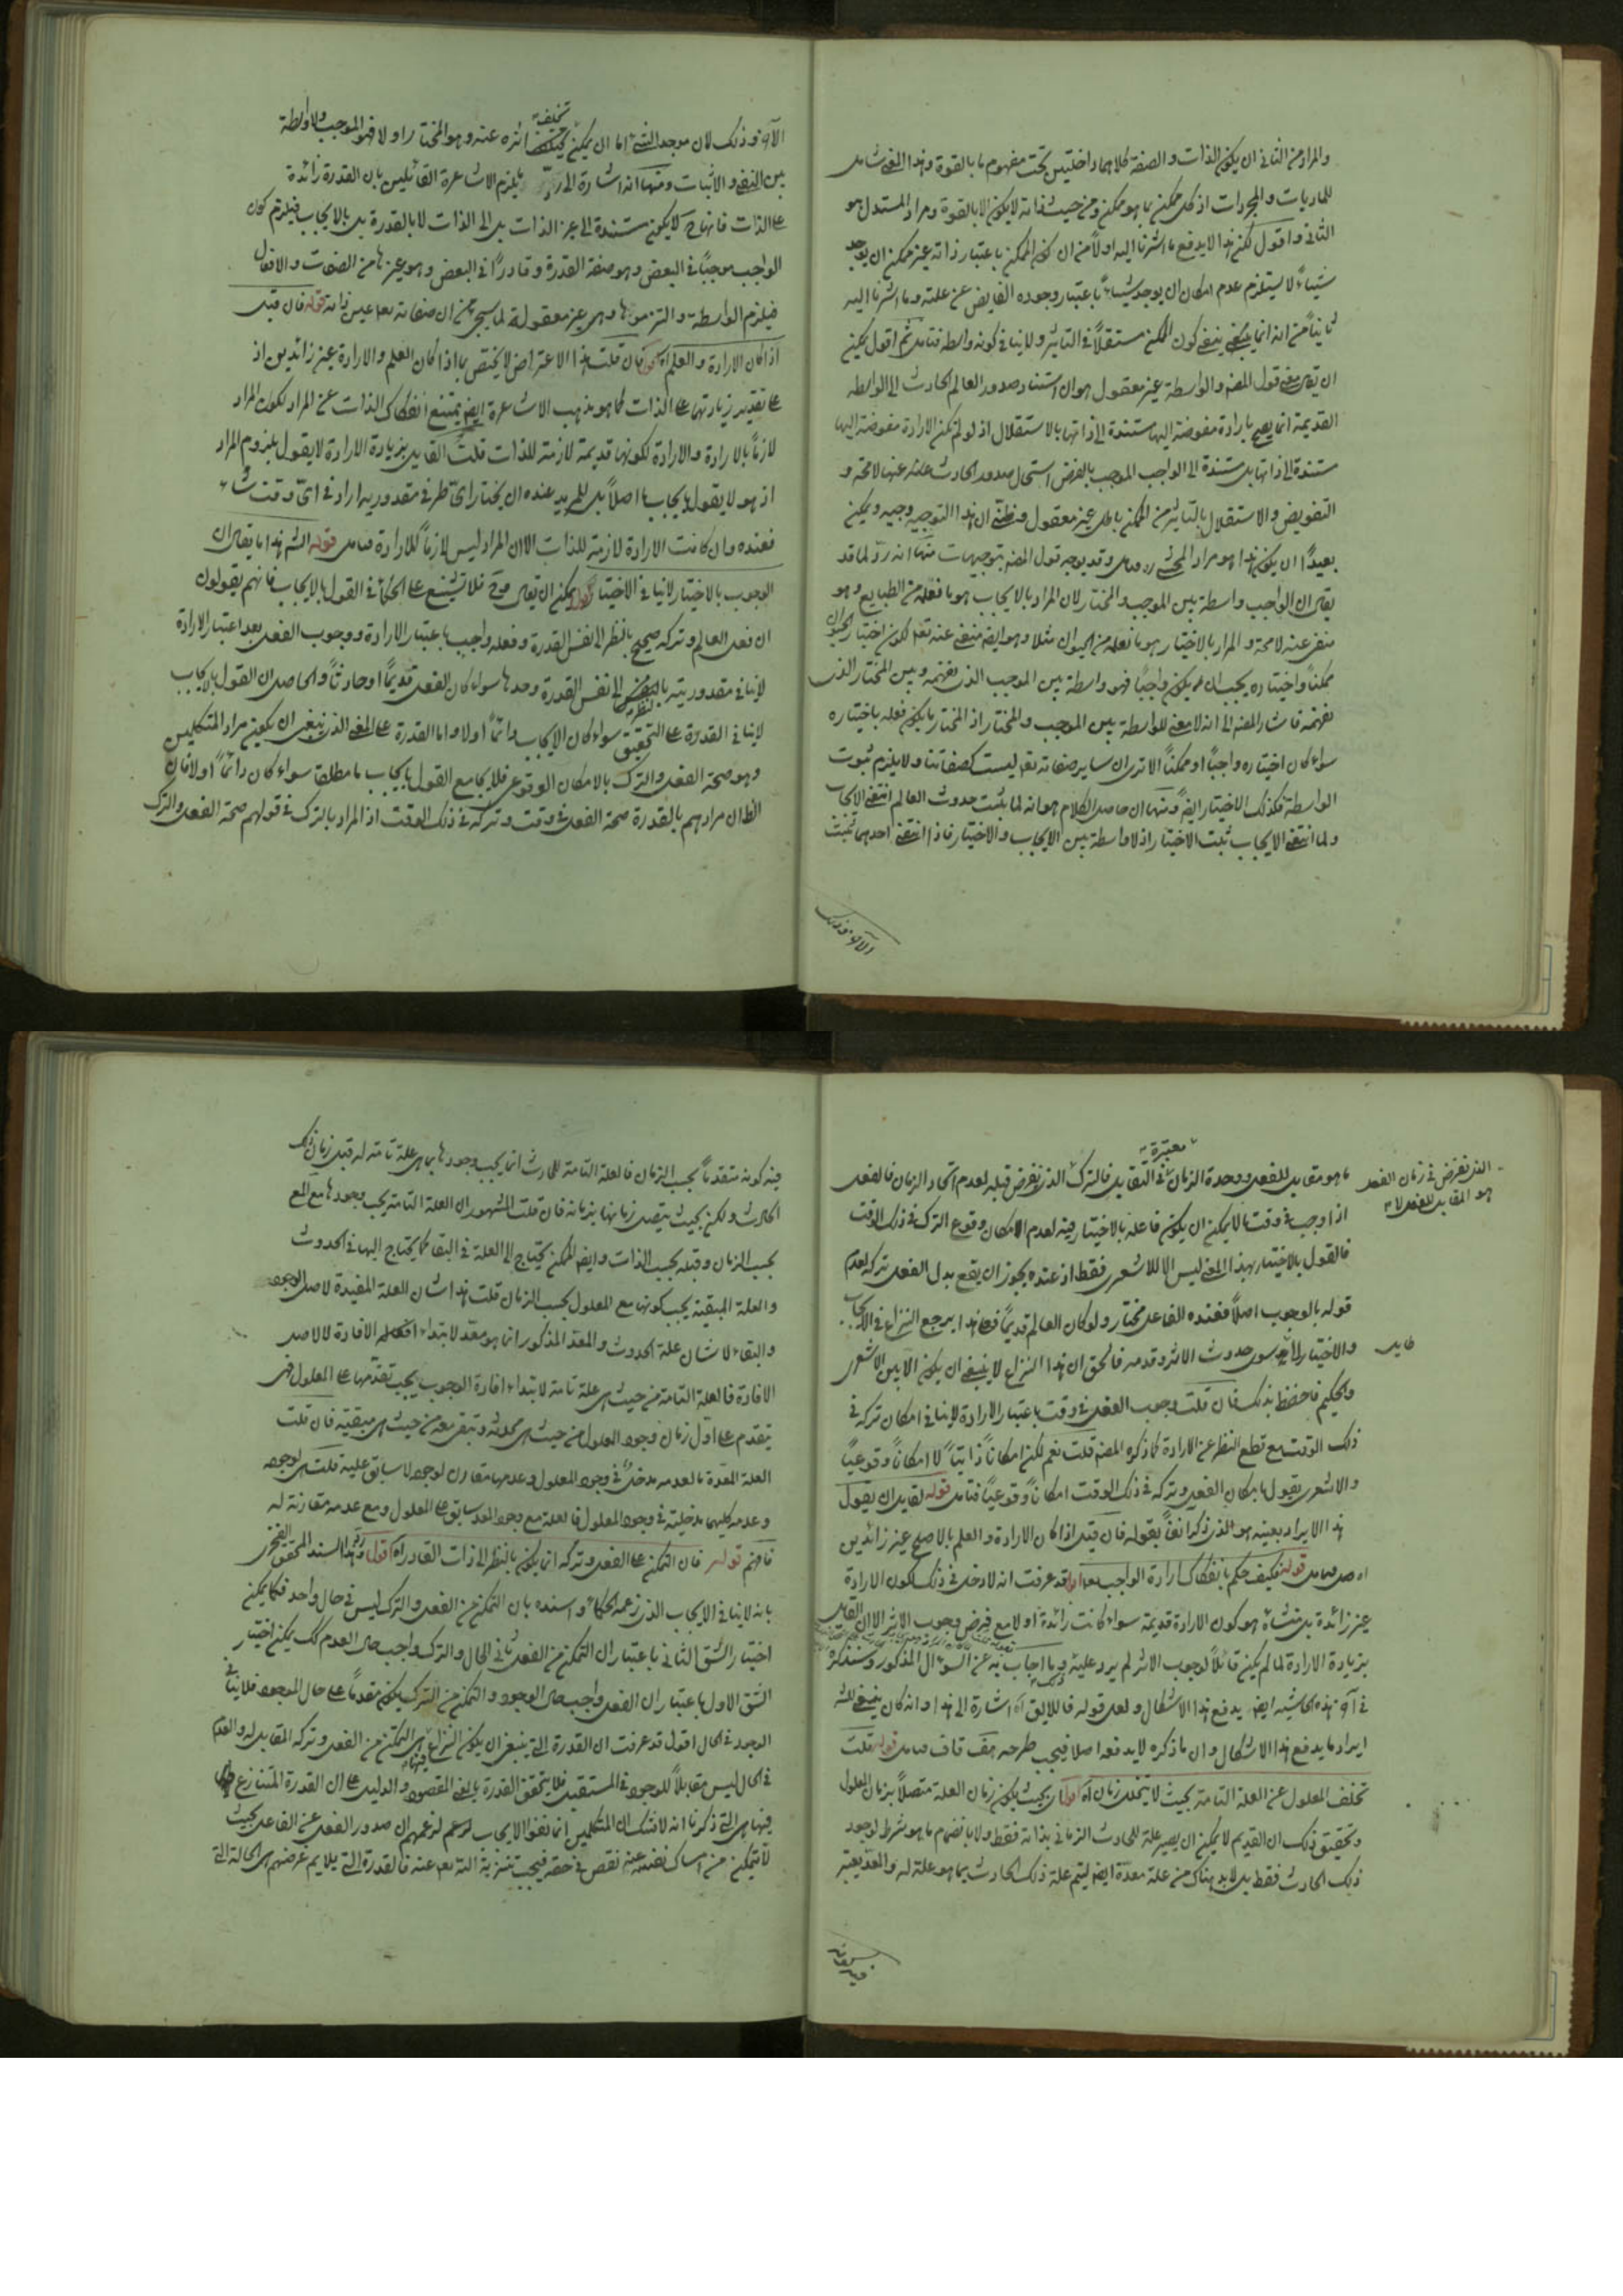 والمراد من الثاني ان يكون الذات والصفة كلاهما داخلتين تحت مفهوم ما بالقوة وهذا المعنى شامل
للماديات والمجردات اذ كل ممكن بما هو ممكن ومن حيث ذاته لا يكون الا بالقوة ومراد المستدل هو
الثاني واقول لكن هذا لا يدفع ما اشرنا اليه اولاً من ان كون الممكن باعتبار ذاته غير ممكن ان يوجد
شيئاً لا يستلزم عدم امكان ان يوجد شيئاً باعتبار وجوده الفايض عن علته وما اشرنا اليه
ثانياً من انه انما ينفي كون الممكن مستقلاً في التاثير ولا ينافي كونه واسطة فتامل ثم اقول يمكن
ان يقال معنى قول المصنف والواسطة غير معقول هو ان استناد صدور العالم الحادث الى الواسطة
القديمة انما يصح بارادة مفوضة اليها مستندة الى ذاتها بالاستقلال اذ لو لم تكن الارادة مفوضة اليها
مستندة الى ذاتها بل مستندة الى الواجب الموجب بالفرض استحال صدور الحادث عنها لا محة و
التفويض والاستقلال بالتاثير من الممكن باطل غير معقول وظني ان هذا التوجيه وجيه ويمكن
بعيداً ان يكون هذا هو مراد المحشي ره وقد يوجه قول المصنف بتوجيهات منها انه ردّ لما قد
يقال ان الواجب واسطة بين الموجب والمختار لان المراد بالايجاب هو ما فعله من الطبايع وهو
منفي عنه لا محة والمراد بالاختيار هو ما نعلمه من الحيوان مثلا وهو ايضا منفي عنه تعم لكون اختيار الحيوان
ممكناً واختياره يجب ان يكون واجباً فهو واسطة بين الموجب الذي نفهمه وبين المختار الذي
نفهمه فاشار المصنف الى انه لا معنى للواسطة بين الموجب والمختار اذ المختار ما يكون فعله باختياره
سواء كان اختياره واجباً او ممكناً الا ترى ان ساير صفاته تعم ليست كصفاتنا ولا يلزم ثبوت
الواسطة فكذلك الاختيار ايضا ومنها ان حاصل الكلام هو انه لما ثبت حدوث العالم انتفى الايجاب
ولما انتفى الايجاب ثبت الاختيار اذ لا واسطة بين الايجاب والاختيار فاذا انتفى احدهما ثبت
الآخر وذلك
الآخر وذلك لان موجد الشيء اما ان يمكن تخلف اثره عنه وهو المختار او لا فهو الموجب ولا واسطة
بين النفي والاثبات ومنها انه اشارة الى ردّ ما يلزم الاشاعرة القائلين بان القدرة زائدة
على الذات فانها ح لا يكون مستندة الى غير الذات بل الى الذات لا بالقدرة بل بالايجاب فيلزم كون
الواجب موجباً في البعض وهو صفة القدرة وقادراً في البعض وهو غيرها من الصفات والافعال
فيلزم الواسطة والتزموها وهي غير معقولة لما سيجيء من ان صفاته تعم عين ذاته قوله فان قيل
اذا كان الارادة والعلم اه اقول فان قلت هذا الاعتراض لا يختص بما اذا كان العلم والارادة غير زائدين اذ
على تقدير زيادتهما على الذات كما هو مذهب الاشاعرة ايضا يمتنع انفكاك الذات عن المراد لكون المراد
لازماً بالارادة والارادة لكونها قديمة لازمة للذات قلت القايل بزيادة الارادة لا يقول بلزوم المراد
اذ هو لا يقول بايجاب ما اصلاً بل للمريد عنده ان يختار ايّ طرف في مقدوريه اراد في ايّ وقت شاء
فعنده وان كانت الارادة لازمة للذات الا ان المراد ليس لازماً للارادة فتامل قوله الشم هذا ما يقال ان
الوجوب بالاختيار لا ينافي الاختيار اقول يمكن ان يقال فح فلا تشنيع على الحكماء في القول بالايجاب فانهم يقولون
ان فعل العالم وتركه صحيح بالنظر الى نفس القدرة وفعله واجب باعتبار الارادة ووجوب الفعل بعد اعتبار الارادة
لا ينافي مقدوريته بالنظر الى نفس القدرة وحدها سواء كان الفعل قديماً او حادثاً والحاصل ان القول بالايجاب
لا ينافي القدرة على التحقيق سواء كان الايجاب دائماً او لا واما القدرة على المعنى الذي ينبغي ان يكون مراد المتكلمين
وهو صحة الفعل والترك بالامكان الوقوعي فلا يجامع القول بايجاب ما مطلقا سواء كان دائماً او لا فان
الظ ان مرادهم بالقدرة صحة الفعل في وقت وتركه في ذلك الوقت اذ المراد بالترك في قولهم صحة الفعل والترك
ما هو مقابل للفعل ووحدة الزمان معتبرة في التقابل فالترك الذي نفرض قبله لعدم اتحاد الزمان فالفعل
الذي نفرض في زمان الفعل
هو المقابل للفعل لا
اذا وجب في وقت ما لا يمكن ان يكون فاعله بالاختيار فيه لعدم الامكان وقوع الترك في ذلك الوقت
فالقول بالاختيار بهذا المعنى ليس الا للاشعري فقط اذ عنده يجوز ان يقع بدل الفعل تركه لعدم
قوله بالوجوب اصلاً فعنده الفاعل مختار ولو كان العالم قديماً فعلى هذا يرجع النزاع في الايجاب
والاختيار الى سوى حدوث الاثر وقدمه فالحق ان هذا النزاع لا ينبغي ان يكون الا بين الاشعري
والحكيم فاحفظ بذلك فان قلت وجوب الفعل في وقت باعتبار الارادة لا ينافي امكان تركه في
ذلك الوقت مع قطع النظر عن الارادة كما ذكره المصنف قلت نعم لكن امكاناً ذاتياً لا امكاناً وقوعياً
والاشعري يقول بامكان الفعل وتركه في ذلك الوقت امكاناً وقوعياً فتامل قوله لقايل ان يقول
هذا الايراد بعينه هو الذي ذكر انفاً بقوله فان قيل اذا كان الارادة والعلم بالاصلح غير زائدين
اه فتامل قوله فكيف حكم بانفكاك ارادة الواجب تعم اقول قد عرفت انه لا دخل في ذلك لكون الارادة
غير زائدة بل منشاؤه هو كون الارادة قديمة سواء كانت زائدة او لا مع فرض وجوب الاثر الا ان القايل
بزيادة الارادة لما لم يكن قائلاً لوجوب الاثر لم يرد عليه وما اجاب به عن السؤال المذكور وسنذكره
في آخر هذه الحاشية ايضا يدفع هذا الاشكال ولعل قوله فاللايق اه اشارة الى هذا وانه كان ينبغي للش
ايراد ما يدفع هذا الاشكال وان ما ذكره لا يدفعه اصلا فيجب طرحه فتامل قوله قلت
تخلف المعلول عن العلة التامة بحيث لا يتخلل زمان اه اقول اي بحيث يكون زمان العلة متصلاً بزمان المعلول
وتحقيق ذلك ان القديم لا يمكن ان يصير علة للحادث الزماني بذاته فقط ولا بانضمام ما هو شرط لوجود
ذلك الحادث فقط بل لا بد هناك من علة معدّة ايضا ليتم علة ذلك الحادث بما هو علة له والمعدّ يعتبر
فيه كونه
فيه كونه متقدماً بحسب الزمان فالعلة التامة للحادث انما يجب وجودها بما هي علة تامة له قبل زمان ذلك
الحادث ولكن بحيث يتصل زمانها بزمانه فان قلت المشهور ان العلة التامة يجب وجودها مع المع
بحسب الزمان وقبله بحسب الذات وايضا الممكن يحتاج الى العلة في البقاء كما يحتاج اليها في الحدوث
والعلة المبقية يجب كونها مع المعلول بحسب الزمان قلت هذا شان العلة المفيدة لاصل الوجود
والبقاء لا شان علة الحدوث والمعدّ المذكور انما هو معدّ لابتداء الافادة لا لاصل
الافادة فالعلة التامة من حيث هي علة تامة لابتداء افادة الوجود يجب تقدّمها على المعلول فهي
يتقدم على اول زمان وجود المعلول من حيث هي محدثة وتبقى معه من حيث هي مبقية فان قلت
العلة المعدّة لعدمه مدخل في وجود المعلول وعدمها مقارن لوجوده لا سابق عليه قلت هي لوجوده
وعدمه كليهما مدخلية في وجود المعلول فالعلة مع وجود المعد سابق على المعلول ومع عدمه مقارنة له
فافهم قوله فان التمكن على الفعل وتركه انما يكون بالنظر الى ذات القادر اه اقول وهذا السند المحقق الفخري
بانه لا ينافي الايجاب الذي زعمه الحكماء واسنده بان التمكن من الفعل والترك ليس في حال واحد فكما يمكن
اختيار الشق الثاني باعتبار ان التمكن من الفعل ثاني الحال والترك واجب حال العدم كك يمكن اختيار
الشق الاول باعتبار ان الفعل واجب حال الوجود والتمكن من الترك يكون مقدماً على حال الوجود فلا ينافي
الوجود في الحال اقول قد عرفت ان القدرة التي ينبغي ان يكون النزاع فيها هي التمكن من الفعل وتركه المقابل له والعدم
في الحال ليس مقابلاً للوجود في المستقبل فلا يتحقق القدرة بالمعنى المقصود والدليل على ان القدرة المتنازع
فيها هي التي ذكرنا انه لا شك ان المتكلمين انما نفوا الايجاب لزعمهم ان صدور الفعل عن الفاعل بحيث
لا يتمكن من امساك نفسه عنه نقص في حقه فيجب تنزيه الله تعم عنه فالقدرة التي يلايم غرضهم هي الحالة التي